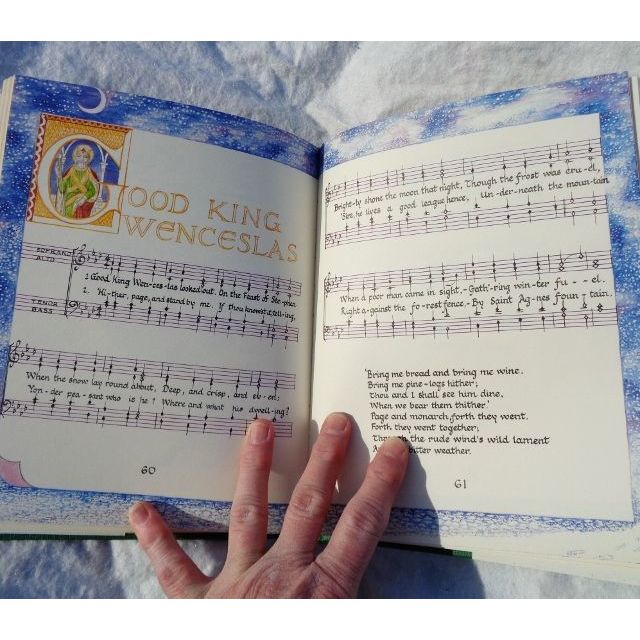 GOOD KING
WENCESLAS
SOPRANO
ALTO
1. Good King Wen-ces-las looked out, On the Feast of Ste-phen
2. Hi-ther, page, and stand by me. If thou know'st it, tell-ing,
TENOR
BASS
When the snow lay round about, Deep, and crisp, and ev-en:
Yon-der pea-sant who is he? Where and what his dwell-ing?
60
Bright-ly shone the moon that night, Though the frost was cru-el,
'Sire, he lives a good league hence, Un-der-neath the moun-tain
When a poor man came in sight,- Gath'ring win-ter fu---el.
Right a-gainst the fo-rest fence,- By Saint Ag-nes' foun-tain.
'Bring me bread and bring me wine.
Bring me pine-logs hither;
Thou and I shall see him dine,
When we bear them thither.'
Page and monarch, forth they went.
Forth they went together;
Through the rude wind's wild lament
bitter weather.
61